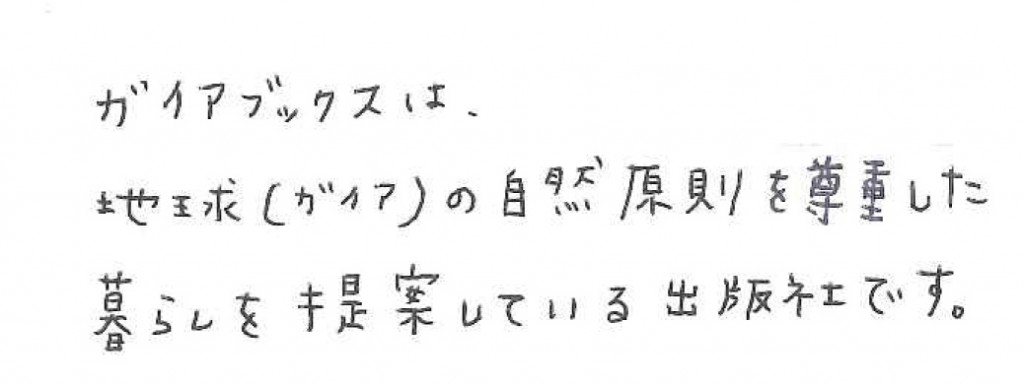 ガイアブックスは、
地球(ガイア)の自然原則を尊重した
暮らしを提案している出版社です。